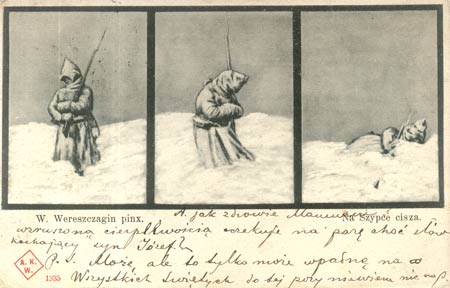 W. Wereszczagin pinx.
Na Szypce cisza.
A jak zdrowie
wzruszoną cierpliwością oczekuje na parę choć słów
kochający syn Józef
P.S. Może, ale to tylko może wpadnę na
Wszystkich Świętych do tej pory niewiem nic na
A. K.
W.
1335